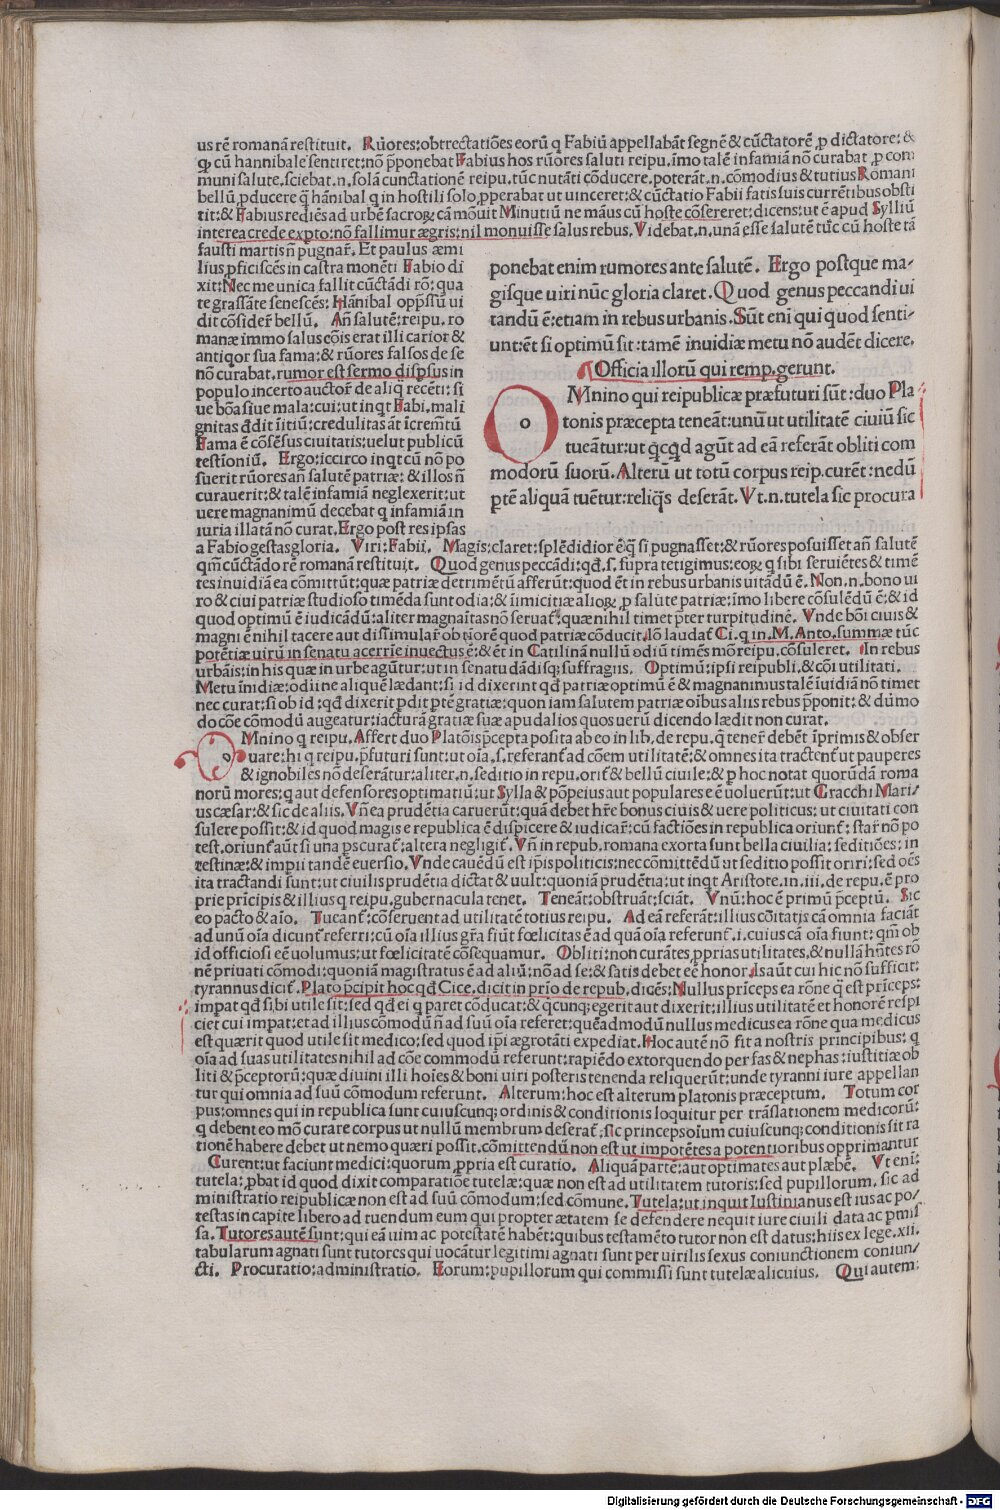 us rē romanā restituit. Rūores: obtrectatiōes eorū q Fabiū appellabāt segnē & cūctatorē p dictatore: &
qꝫ cū hannibale sentiret: nō p̄ponebat Fabius hos rūores saluti reipu. īmo talē infamiā nō curabat p com
muni salute. sciebat .n. solā cunctationē reipu. tūc nutāti cōducere. poterāt .n. cōmodius & tutius Romani
bellū p̱ducere q̄ hānibal q in hostili solo p̱perabat ut uinceret: & cūctatio Fabii fatis suis currētibus obsti
tit: & Fabius rediēs ad urbē sacroꝝ cā mōuit Minutiū ne māus cū hoste cōsereret: dicens: ut ē apud Sylliū
interea crede expto: nō fallimur ægris: nil monuisse salus rebus. Videbat .n. unā esse salutē tūc cū hoste tā
fausti martis n̄ pugnar̄. Et paulus æmi
lius p̱ficiscēs in castra monēti Fabio di
xit: Nec me unica fallit cūctādi rō: qua
te grassāte senescēs: Hānibal opp̄ssū ui
dit cōsider̄ bellū. An̄ salutē: reipu. ro
manæ immo salus cōis erat illi carior &
antiqor sua fama: & rūores falsos de se
nō curabat. rumor est sermo disp̱sus in
populo incerto auctor̄ de aliq̄ recēti: si
ue bōa siue mala: cui: ut inqt Fabi. mali
gnitas ddit ītiū: credulitas āt īcremētū
Fama ē cōsēsus ciuitatis: uelut publicū
testioniū. Ergo: iccirco inqt cū nō po
suerit rūores an̄ salutē patriæ: & illos n̄
curauerit: & talē infamiā neglexerit: ut
uere magnanimū decebat q infamiā in
iuria illatā nō curat. Ergo post res ipsas
ponebat enim rumores ante salutē. Ergo postque ma-
gisque uiri nūc gloria claret. Quod genus peccandi ui
tandū ē: etiam in rebus urbanis. Sūt eni qui quod senti-
unt: ēt si optimū sit: tamē inuidiæ metu nō audēt dicere.
¶ Officia illorū qui remp. gerunt.
OMnino qui reipublicæ præfuturi sūt: duo Pla
tonis præcepta teneāt: unū ut utilitatē ciuiū sic
tueātur: ut qcqd agūt ad eā referāt obliti com
modorū suorū. Alterū ut totū corpus reip. curēt: nedū
ptē aliquā tuētur: reliqs deserāt. Vt .n. tutela sic procura
a Fabio gestas gloria. Viri: Fabii. Magis: claret: splēdidior ē q̄ si pugnasset: & rūores posuisset an̄ salutē
qm̄ cūctādo rē romanā restituit. Quod genus peccādi: qd̄ .s. supra tetigimus: eoꝝ q sibi seruiētes & timē
tes inuidiā ea cōmittūt: quæ patriæ detrimētū afferūt: quod ēt in rebus urbanis uitādū ē. Non .n. bono ui
ro & ciui patriæ studioso timēda sunt odia: & īimicitiæ alioꝝ p salute patriæ: īmo libere cōsulēdū ē: & id
quod optimū ē iudicādū: aliter magnaītas nō seruat̄. quæ nihil timet p̄ter turpitudinē. Vnde bōi ciuis &
magni ē nihil tacere aut dissimular̄ ob tīorē quod patriæ cōducit. Iō laudat̄ Ci. q in .M. Anto. summæ tūc
potētiæ uirū in senatu acerrīe inuectus ē: & ēt in Catilinā nullū odiū timēs mō reipu. cōsuleret. In rebus
urbāis: in his quæ in urbe agūtur: ut in senatu dādisqꝫ suffragiis. Optimū: ipsi reipubli. & cōi utilitati.
Metu īnidiæ: odii ne aliquē lædant: si id dixerint qd̄ patriæ optimū ē & magnanimus talē īuidiā nō timet
nec curat: si ob id: qd̄ dixerit p̱dit ptē gratiæ: quoniam salutem patriæ oībus aliis rebus p̄ponit: & dūmo
do cōe cōmodū augeatur: iacturā gratiæ suæ apud alios quos uerū dicendo lædit non curat.
OMnino q reipu. Affert duo Platōis p̄cepta posita ab eo in lib. de repu. q̄ tener̄ debēt īprimis & obser
uare: hi q reipu. p̄futuri sunt: ut oīa .s. referant̄ ad cōem utilitatē: & omnes ita tractent̄ ut pauperes
& ignobiles nō deserātur: aliter .n. seditio in repu. orit̄ & bellū ciuile: & p hoc notat quorūdā roma
norū mores: q aut defensores optimatiū: ut Sylla & pōpeius aut populares eē uoluerūt: ut Gracchi Mari-
us cæsar: & sic de aliis. Vn̄ ea prudētia caruerūt: quā debet hr̄e bonus ciuis & uere politicus: ut ciuitati con
sulere possit: & id quod magis e republica ē dispicere & iudicar̄: cū factiōes in republica oriunt̄: star̄ nō po
test. oriunt̄ aūt si una p̱scurat̄: altera negligit̄. Vn̄ in repub. romana exorta sunt bella ciuilia: seditiōes: in
testinæ: & impii tandē euersio. Vnde cauēdū est ip̄is politicis: nec cōmittēdū ut seditio possit oriri: sed oēs
ita tractandi sunt: ut ciuilis prudētia dictat & uult: quoniā prudētia: ut inqt Aristote. in .iii. de repu. ē pro
prie prīcipis & illius q reipu. gubernacula tenet. Teneāt: obstruāt: sciāt. Vnū: hoc ē primū p̄ceptū. Sic
eo pacto & aīo. Tueant̄: cōseruent ad utilitatē totius reipu. Ad eā referāt: illius cōitatis cā omnia faciāt
ad unū oīa dicunt̄ referri: cū oīa illius gr̄a fiūt fœlicitas ē ad quā oīa referunt̄ .i. cuius cā oīa fiunt: qm̄ ob
id officiosi eē uolumus: ut fœlicitatē cōsequamur. Obliti: non curātes p̱prias utilitates. & nullā hn̄tes rō
nē priuati cōmodi: quoniā magistratus ē ad aliū: nō ad se: & satis debet eē honor. Is aūt cui hic nō sufficit:
tyrannus dicit̄. Plato p̄cipit hoc qd̄ Cice. dicit in prīo de repub. dicēs: Nullus prīceps ea rōne q̄ est prīceps:
impat qd̄ sibi utile sit: sed qd̄ ei q paret cōducat: & qcunqꝫ egerit aut dixerit: illius utilitatē et honorē respi
ciet cui impat: et ad illius cōmodū n̄ ad suū oīa referet: quēadmodū nullus medicus ea rōne qua medicus
est quærit quod utile sit medico: sed quod ip̄i ægrotāti expediat. Hoc autē nō fit a nostris principibus: q
oīa ad suas utilitates nihil ad cōe commodū referunt: rapiēdo extorquendo per fas & nephas: iustitiæ ob
liti & p̄ceptorū: quæ diuini illi hoīes & boni uiri posteris tenenda reliquerūt: unde tyranni iure appellan
tur qui omnia ad suū cōmodum referunt. Alterum: hoc est alterum platonis præceptum. Totum cor
pus: omnes qui in republica sunt cuiuscunqꝫ ordinis & conditionis loquitur per trāslationem medicorū:
q debent eo mō curare corpus ut nullū membrum deserat̄. sic princeps oīum cuiuscunqꝫ conditionis sit ra
tionē habere debet ut nemo quæri possit. cōmittendū non est ut impotētes a potentioribus opprimantur
Curent: ut faciunt medici: quorum p̱pria est curatio. Aliquā partē: aut optimates aut plæbē. Vt eni:
tutela: p̱bat id quod dixit comparatiōe tutelæ: quæ non est ad utilitatem tutoris: sed pupillorum. sic ad
ministratio reipublicæ non est ad suū cōmodum: sed cōmune. Tutela: ut inquit Iustinianus est ius ac po-
testas in capite libero ad tuendum eum qui propter ætatem se defendere nequit iure ciuili data ac pmis
sa. Tutores autē sunt: qui eā uim ac potestatē habēt: quibus testamēto tutor non est datus: hiis ex lege .xii.
tabularum agnati sunt tutores qui uocātur legitimi agnati sunt per uirilis sexus coniunctionem coniun-
cti. Procuratio: administratio. Eorum: pupillorum qui commissi sunt tutelæ alicuius. Qui autem:
Digitalisierung gefördert durch die Deutsche Forschungsgemeinschaft - DFG